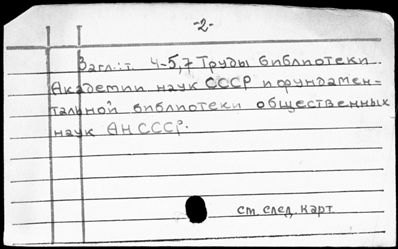 -2-
Загл.: т. 4-5,7 Труды библиотеки
Академии наук СССР и фундамен-
тальной библиотеки общественных
наук АН СССР.
см. след. карт.